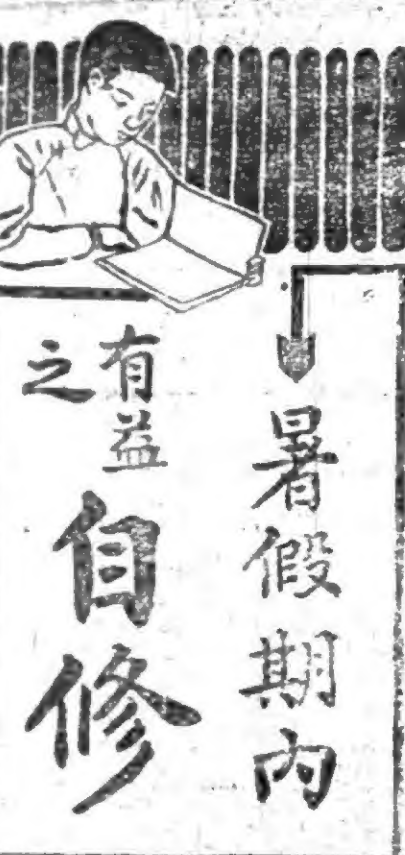 暑假期內
有益之
自修